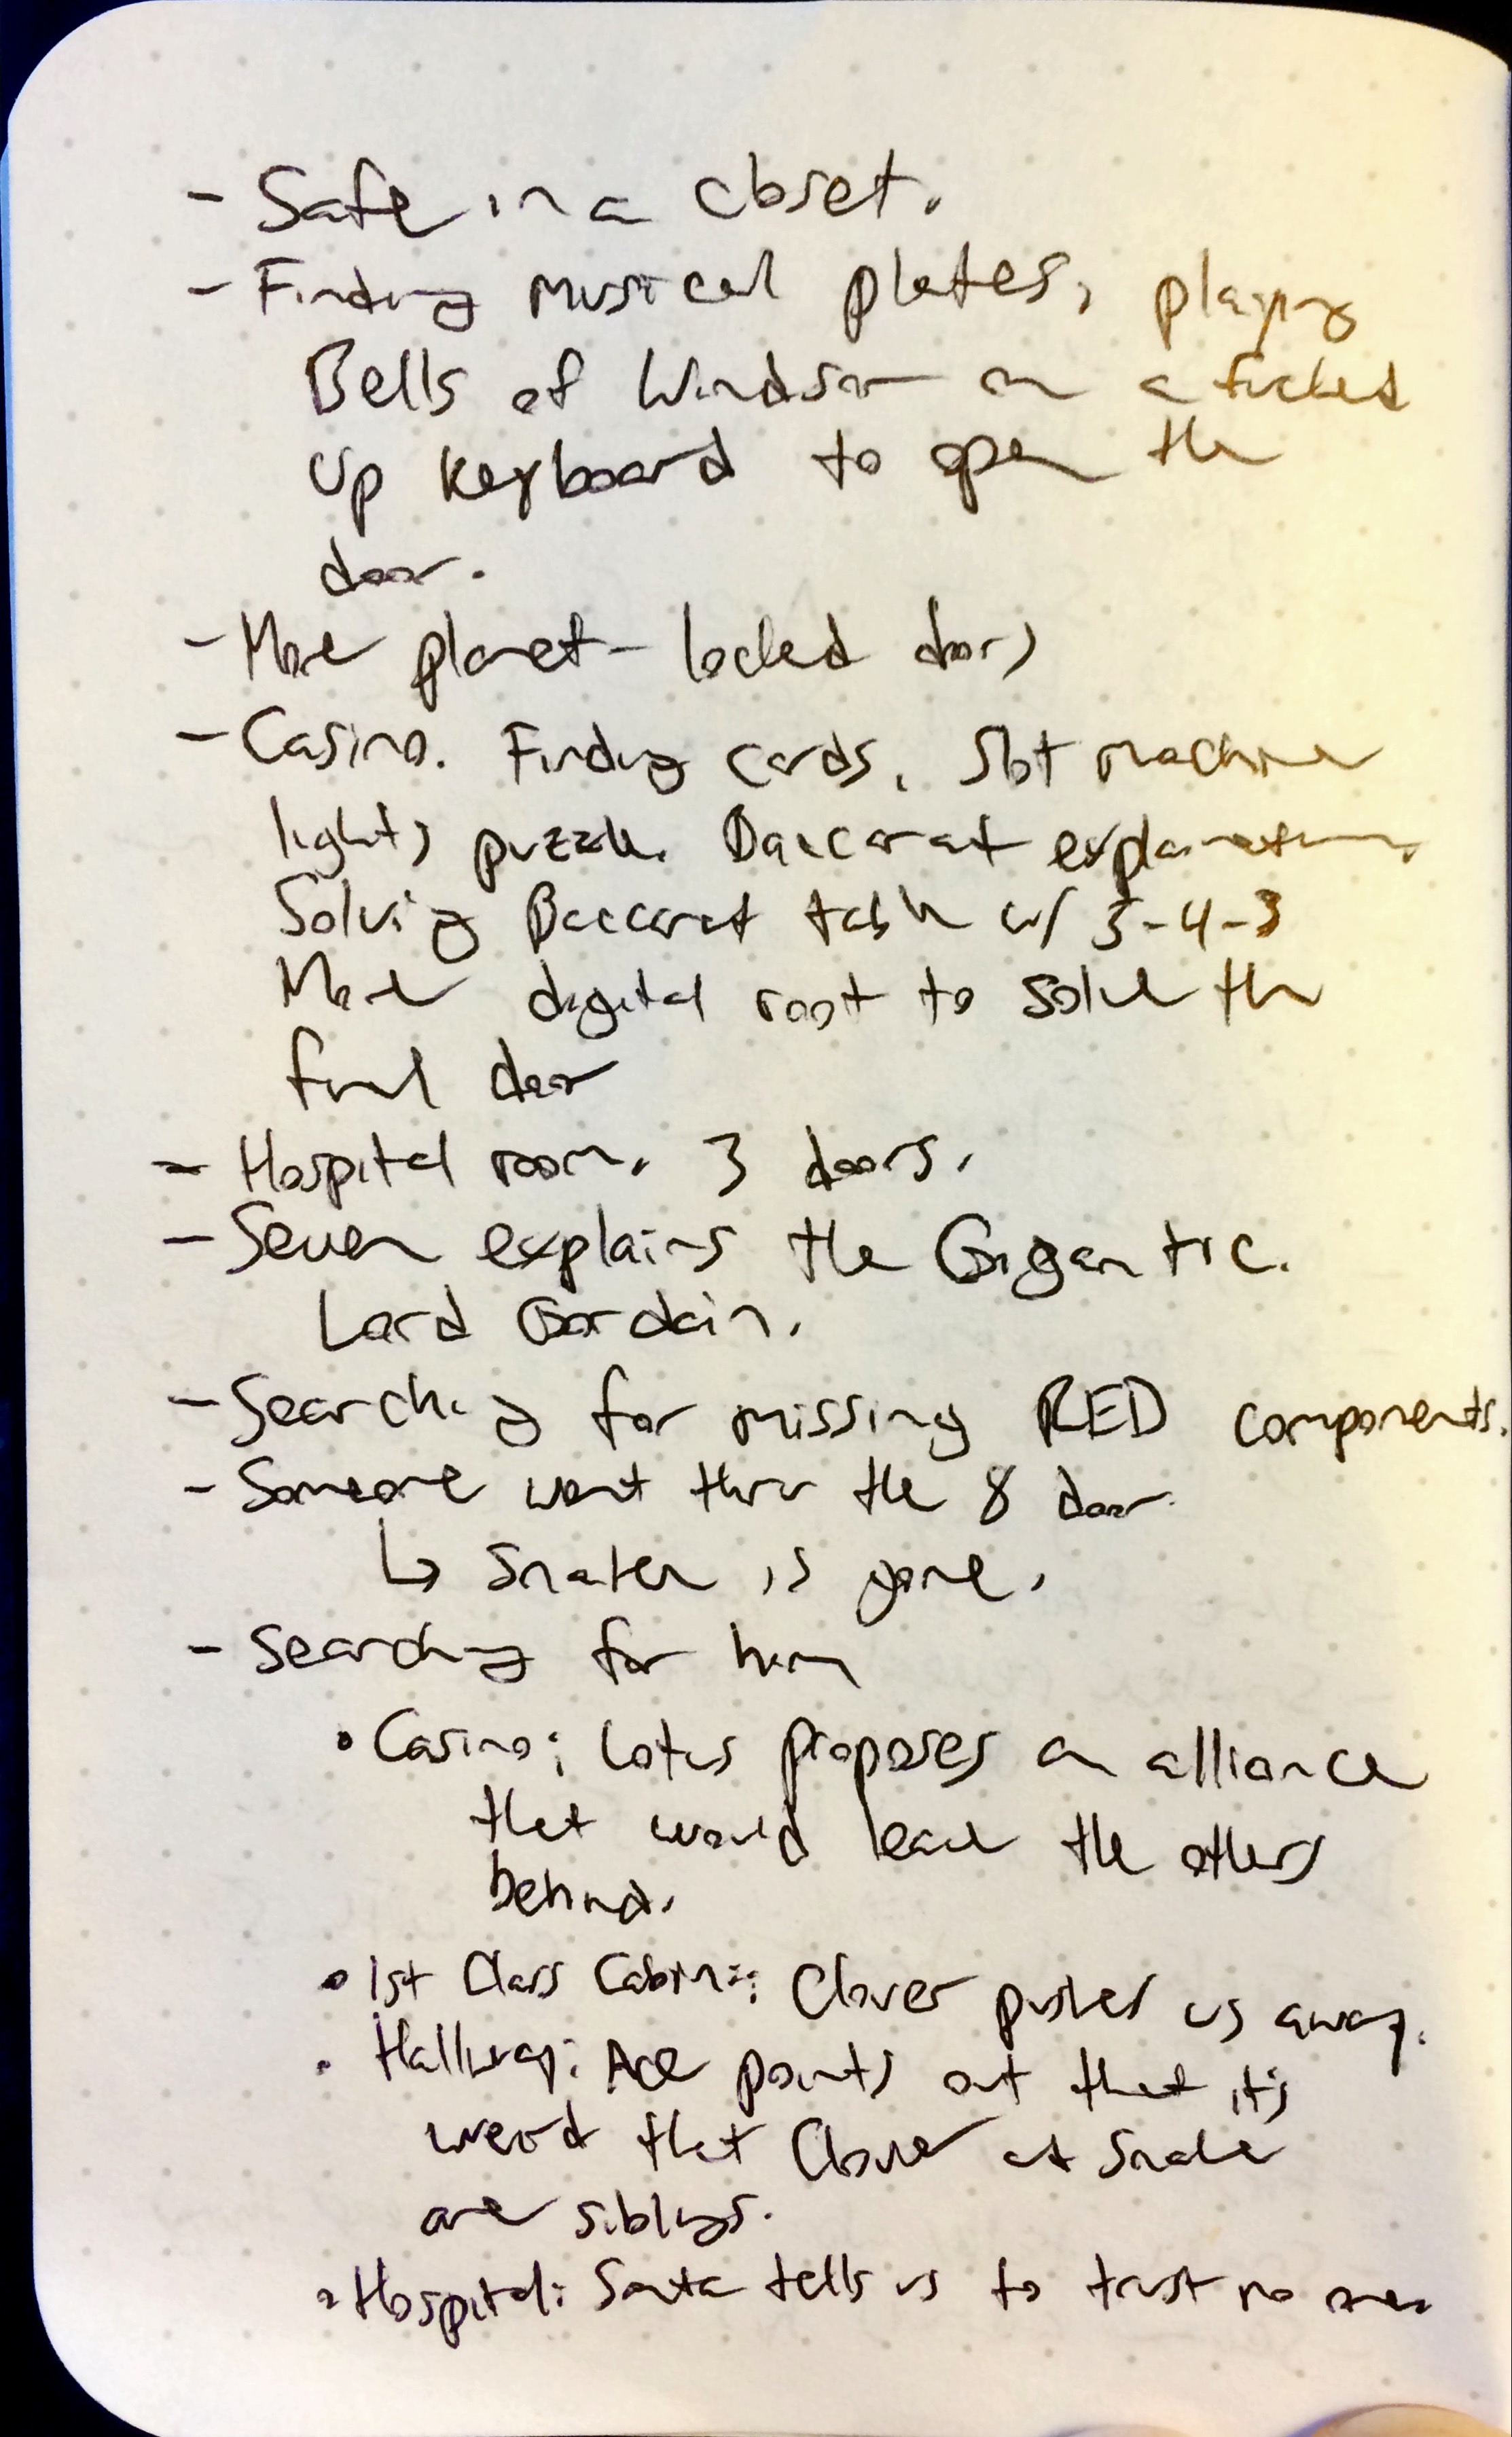 - Safe in a closet.
- Finding musical plates, playing
Bells of Windsor on a fucked
up keyboard to open the
door.
- More planet-locked doors
- Casino. Finding cards. Slot machine
lights puzzle. Baccarat explanation.
Solving Baccarat table w/ 5-4-3
More digital root to solve the
final door
- Hospital room. 3 doors.
- Seven explains the Gigantic.
Lord Gordain.
- Searching for missing RED components.
- Someone went thru the 8 door
↳ Snake is gone.
- Searching for him
• Casino: Lotus proposes an alliance
that would leave the others
behind.
• 1st Class Cabin: Clover pushes us away.
• Hallway: Ace points out that it's
weird that Clover at Snake
are siblings.
• Hospital: Santa tells us to trust no one